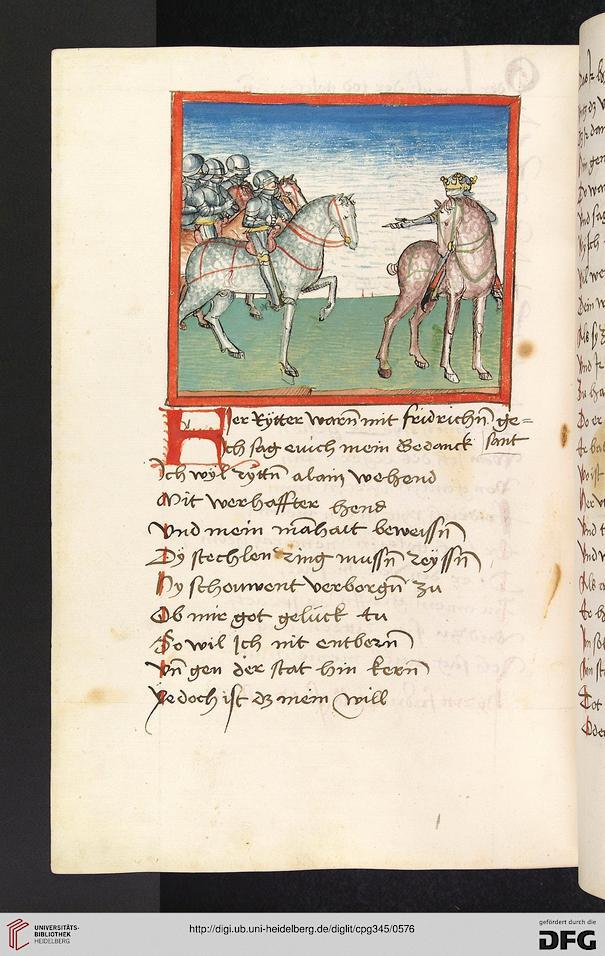 Her Rÿtter warn mit fridrichn ge=
sant
Ich sag euich mein Gedanck
Ich wyl ryttn alain wehend
Mit werhaffter hend
Vnd mein manhait beweissn
Dy stechlen ring mussn reyssn
Ny schouwent verborgn zu
Ob mir got gelück tu
So wil Ich nit entbern
Vn gen der stat hin kern
Yedoch ist dz mein will
UNIVERSITÄTS-
BIBLIOTHEK
HEIDELBERG
http://digi.ub.uni-heidelberg.de/diglit/cpg345/0576
gefördert durch die
DFG